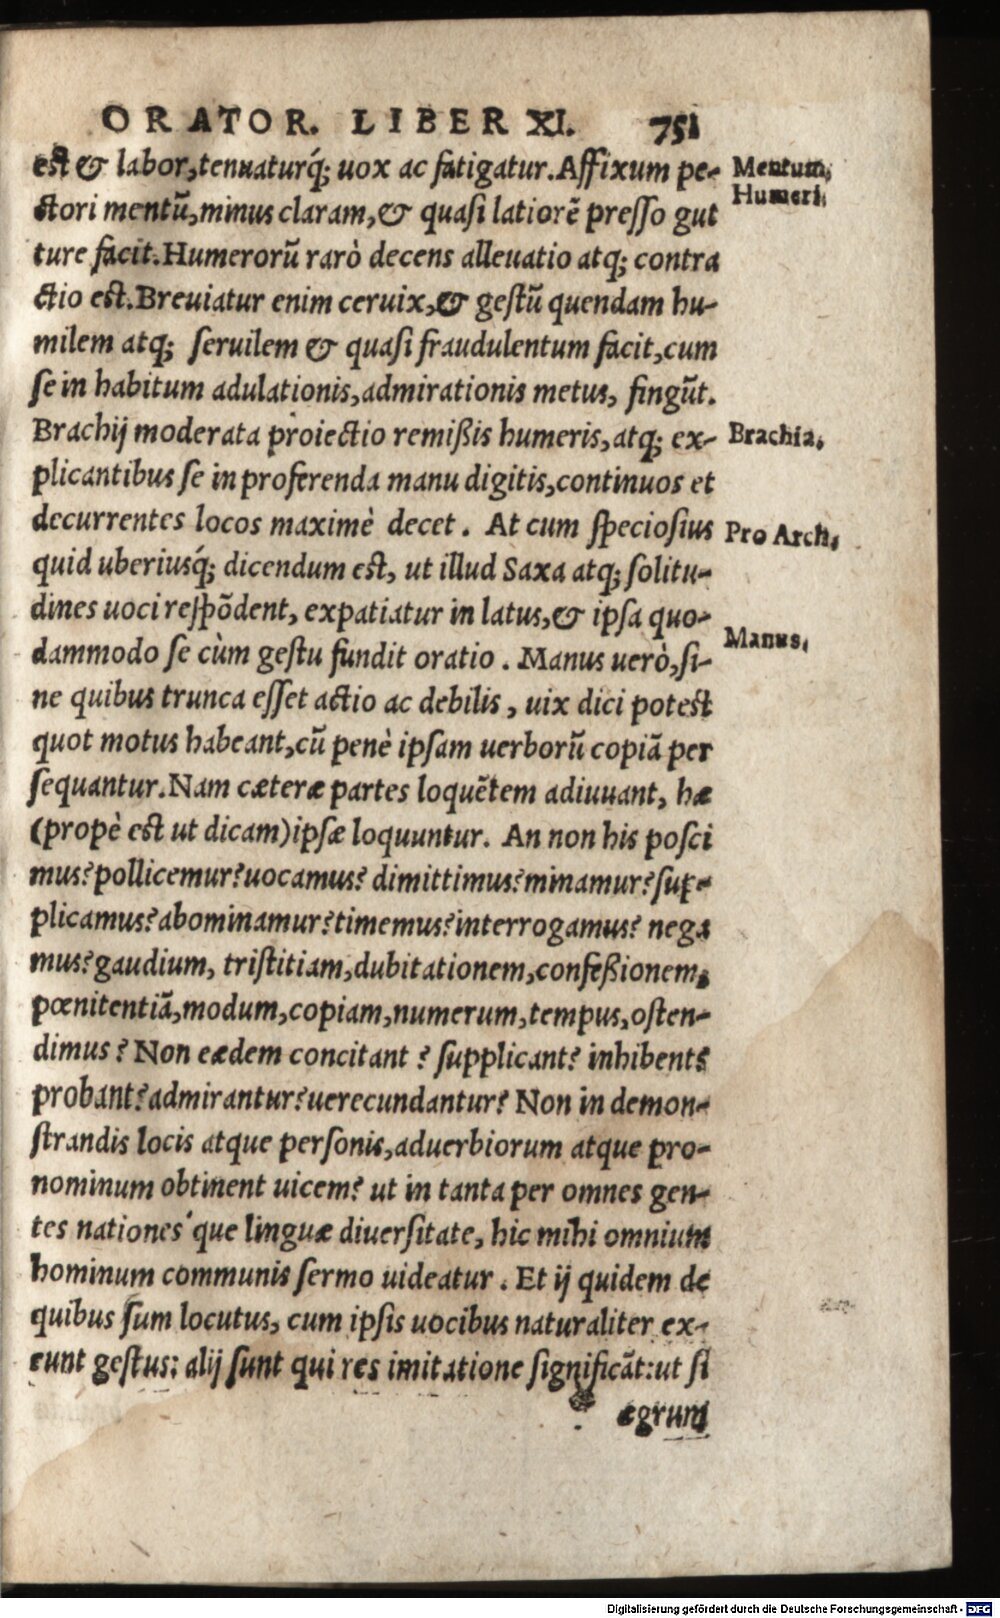 ORATOR. LIBER XI. 751
est & labor, tenuaturq́; uox ac fatigatur. Affixum pe-
ctori mentũ, minus claram, & quasi latiorẽ presso gut
ture facit. Humerorũ rarò decens alleuatio atq; contra
ctio est. Breuiatur enim ceruix, & gestũ quendam hu-
milem atq; seruilem & quasi fraudulentum facit, cum
se in habitum adulationis, admirationis metus, fingũt.
Brachij moderata proiectio remißis humeris, atq; ex-
plicantibus se in proferenda manu digitis, continuos et
decurrentes locos maximè decet. At cum speciosius
quid uberiusq́; dicendum est, ut illud Saxa atq; solitu-
dines uoci respõdent, expatiatur in latus, & ipsa quo-
dammodo se cùm gestu fundit oratio. Manus uerò, si-
ne quibus trunca esset actio ac debilis, uix dici potest
quot motus habeant, cũ penè ipsam uerborũ copiã per
sequantur. Nam cæteræ partes loquẽtem adiuuant, hæ
(propè est ut dicam) ipsæ loquuntur. An non his posci
mus? pollicemur? uocamus? dimittimus? minamur? sup-
plicamus? abominamur? timemus? interrogamus? nega
mus? gaudium, tristitiam, dubitationem, confeßionem,
pœnitentiã, modum, copiam, numerum, tempus, osten-
dimus? Non eædem concitant? supplicant? inhibent?
probant? admirantur? uerecundantur? Non in demon-
strandis locis atque personis, aduerbiorum atque pro-
nominum obtinent uicem? ut in tanta per omnes gen-
tes nationes'que linguæ diuersitate, hic mihi omnium
hominum communis sermo uideatur. Et ij quidem de
quibus sum locutus, cum ipsis uocibus naturaliter ex-
eunt gestus: alij sunt qui res imitatione significãt: ut si
ægrum
Mentum,
Humeri,
Brachia,
Pro Arch,
Manus,
Digitalisierung gefördert durch die Deutsche Forschungsgemeinschaft - DFG